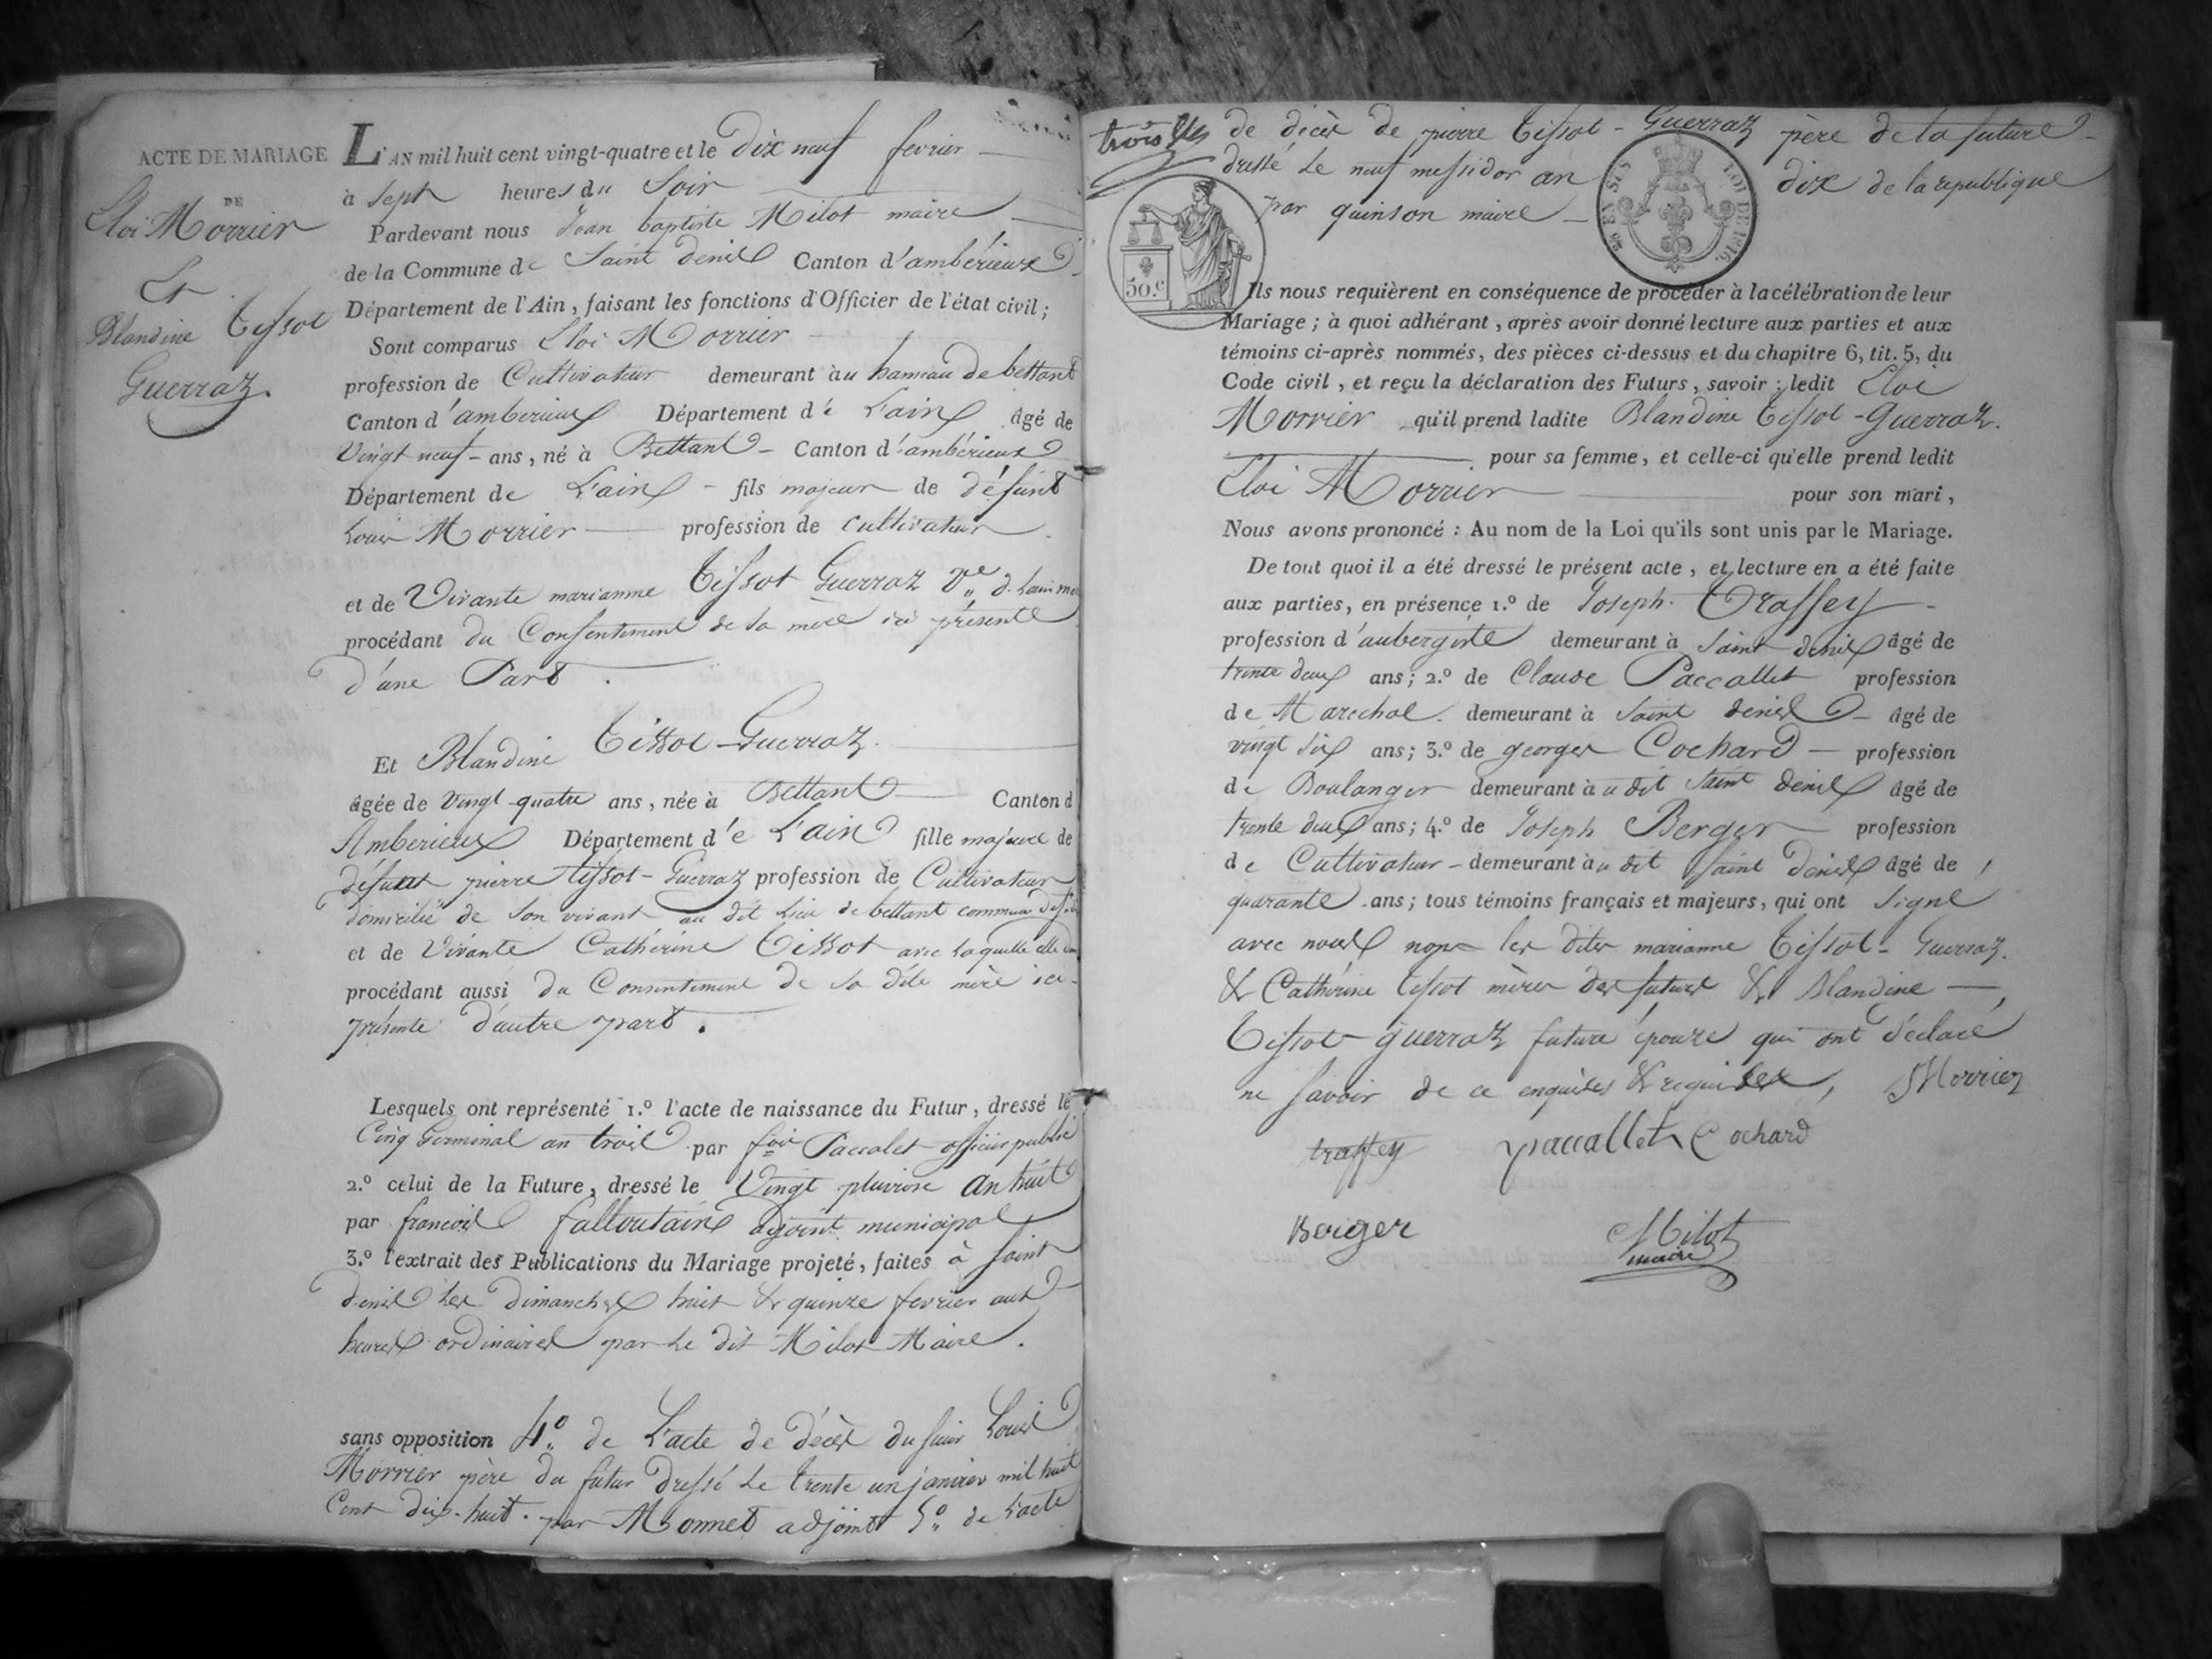 ACTE DE MARIAGE
DE
Eloi Morrier
Et
Blandine Tissot
Guerraz.
L'AN mil huit cent vingt-quatre et le dix neuf fevrier
à sept heures du Soir
Pardevant nous Jean baptiste Milot maire
de la Commune de Saint denis Canton d'ambérieux
Département de l'Ain, faisant les fonctions d'Officier de l'état civil;
Sont comparus Eloi Morrier
profession de Cultivateur demeurant au hameau de bettant
Canton d'amberieux Département de L'ain âgé de
Vingt neuf - ans, né à Bettant - Canton d'ambérieux
Département de L'ain - fils majeur de défunt
Louis Morrier profession de cultivateur
et de Vivante marianne Tissot Guerraz Ve d. Louis
procédant du Consentement de sa mère ici présente
d'une Part.
Et Blandine Tissot-Guerraz.
âgée de vingt-quatre ans, née à Bettant Canton d
Amberieux Département de L'ain fille majeure de
défunt pierre tissot-Guerraz profession de Cultivateur
domicilié de son vivant au dit Lieu de bettant commune
et de Vivante Cathérine Tissot avec laquelle elle
procédant aussi du Consentement de sa dite mère ici
présente d'autre part.
Lesquels ont représenté 1.º l'acte de naissance du Futur, dressé le
Cinq Germinal an trois par foix Paccalet officier public
2.º celui de la Future, dressé le Vingt pluviose an huit
par francois falloutain adjoint municipal
3.º l'extrait des Publications du Mariage projeté, faites à saint
denis les dimanches huit & quinze fevrier aux
heures ordinaires par Le dit Milot Maire.
sans opposition 4.º de L'acte de décès du sieur Louis
Morrier père du futur dressé Le trente un janvier mil huit
Cent dix-huit. par Monnet adjoint 5.º de L'acte
de décès de pierre Tissot-Guerraz père de la future-
dressé Le neuf messidor an dix de la republique
par quinson maire -
50.c
LOI DE 1816.
Ils nous requièrent en conséquence de procéder à la célébration de leur
Mariage; à quoi adhérant, après avoir donné lecture aux parties et aux
témoins ci-après nommés, des pièces ci-dessus et du chapitre 6, tit. 5, du
Code civil, et reçu la déclaration des Futurs, savoir; ledit Eloi
Morrier qu'il prend ladite Blandine Tissot-Guerraz.
pour sa femme, et celle-ci qu'elle prend ledit
Eloi Morrier pour son mari,
Nous avons prononcé : Au nom de la Loi qu'ils sont unis par le Mariage.
De tout quoi il a été dressé le présent acte, et lecture en a été faite
aux parties, en présence 1.º de Joseph Traffey -
profession d'aubergiste demeurant à saint denis âgé de
trente deux ans; 2.º de Claude Paccallet profession
de Marechal. demeurant à saint denis - âgé de
vingt six ans; 3.º de georges Cochard - profession
de Boulanger demeurant à u dit saint denis âgé de
trente deux ans; 4.º de Joseph Berger profession
de Cultivateur - demeurant à u dit saint denis âgé de
quarante ans; tous témoins français et majeurs, qui ont signé
avec nous non les dites marianne Tissot-Guerraz.
& Cathérine tissot mères des futurs & Blandine -,
Tissot guerraz future épouze qui ont déclaré
ne savoir de ce enquises & requises, Morrier
traffey paccallet Cochard
Berger Milot
maire